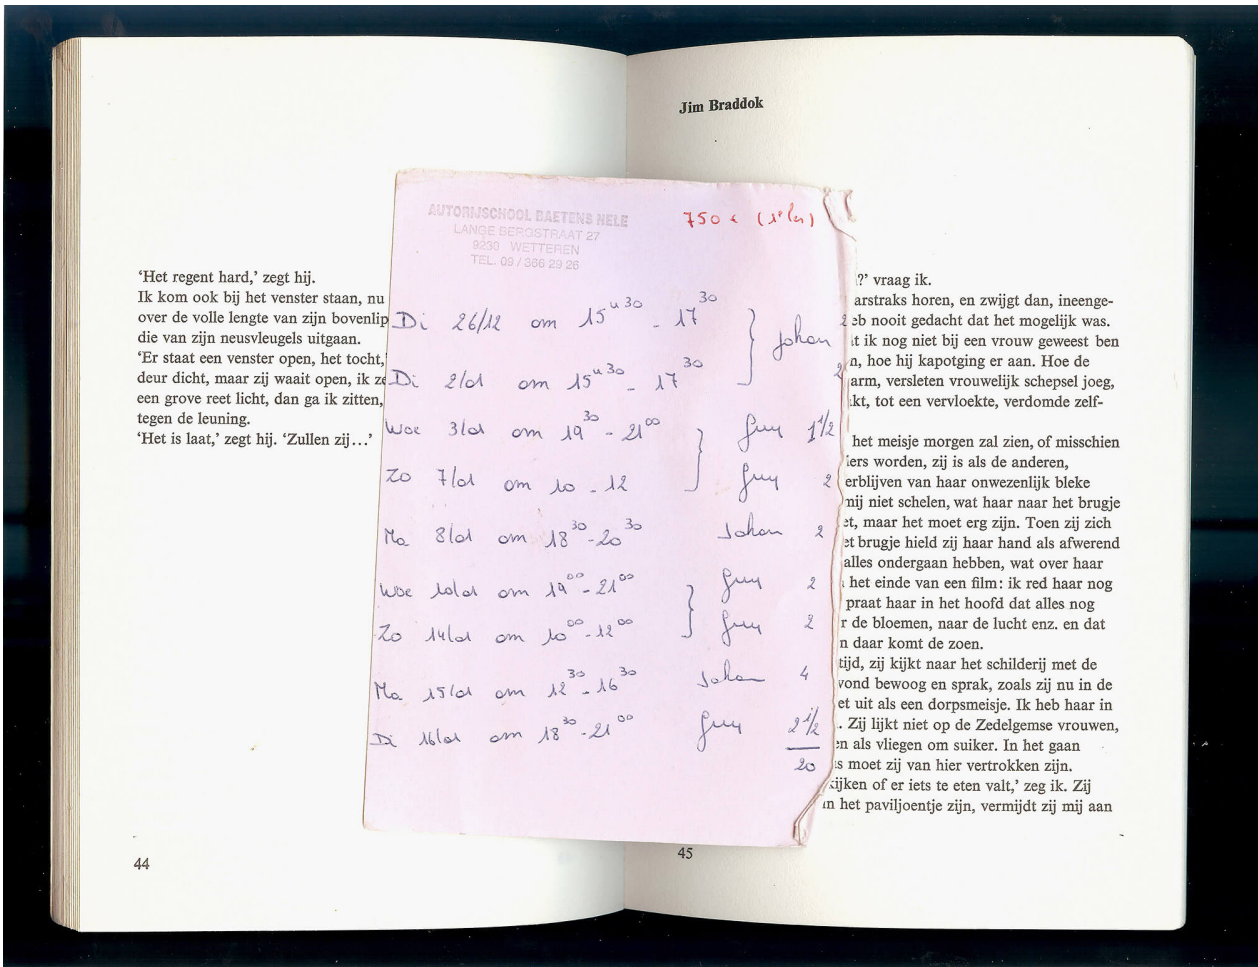 'Het regent hard,' zegt hij.
Ik kom ook bij het venster staan, nu
over de volle lengte van zijn bovenlip
die van zijn neusvleugels uitgaan.
'Er staat een venster open, het tocht,'
deur dicht, maar zij waait open, ik ze
een grove reet licht, dan ga ik zitten,
tegen de leuning.
'Het is laat,' zegt hij. 'Zullen zij...'
44
AUTORIJSCHOOL BAETENS NELE
LANGE BERGSTRAAT 27
9230 WETTEREN
TEL. 09 / 366 29 26
750 €
Di 26/12 om 15u30 - 17 30 Johan 2
Di 2/01 om 15u30 - 17 30 2
Woe 3/01 om 19 30 - 21 00 Guy 1 1/2
Zo 7/01 om 10 - 12 Guy 2
Ma 8/01 om 18 30 - 20 30 Johan 2
Woe 10/01 om 19 00 - 21 00 Guy 2
Zo 14/01 om 10 00 - 12 00 Guy 2
Ma 15/01 om 12 30 - 16 30 Johan 4
Di 16/01 om 18 30 - 21 00 Guy 2 1/2
20
Jim Braddok
?' vraag ik.
arstraks horen, en zwijgt dan, ineenge-
eb nooit gedacht dat het mogelijk was.
it ik nog niet bij een vrouw geweest ben
n, hoe hij kapotging er aan. Hoe de
arm, versleten vrouwelijk schepsel joeg,
kt, tot een vervloekte, verdomde zelf-
het meisje morgen zal zien, of misschien
iers worden, zij is als de anderen,
erblijven van haar onwezenlijk bleke
mij niet schelen, wat haar naar het brugje
et, maar het moet erg zijn. Toen zij zich
et brugje hield zij haar hand als afwerend
alles ondergaan hebben, wat over haar
het einde van een film: ik red haar nog
praat haar in het hoofd dat alles nog
r de bloemen, naar de lucht enz. en dat
n daar komt de zoen.
tijd, zij kijkt naar het schilderij met de
vond bewoog en sprak, zoals zij nu in de
et uit als een dorpsmeisje. Ik heb haar in
. Zij lijkt niet op de Zedelgemse vrouwen,
en als vliegen om suiker. In het gaan
is moet zij van hier vertrokken zijn.
kijken of er iets te eten valt,' zeg ik. Zij
in het paviljoentje zijn, vermijdt zij mij aan
45